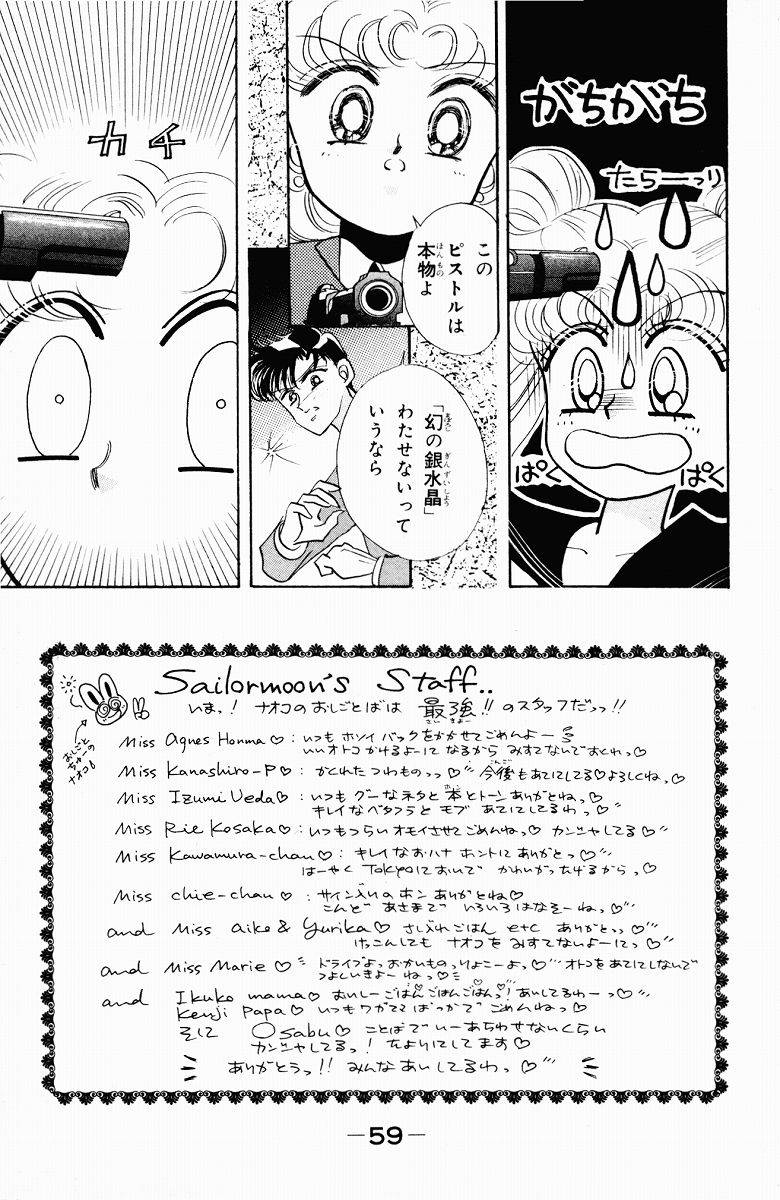 がちがち
たらーっり
ぱく
ぱく
この
ピストルは
本物よ
ほんもの
「幻の銀水晶」
まぼろし ぎんずいしょう
わたせないって
いうなら
カチ
Sailormoon's Staff..
いまっ! ナオコのおしごとばは 最強!! のスタッフだっっ!!
さいきょう
おしごと
ちゅーの
ナオコ
Miss Agnes Honma♡: いつもホソイバックをかかせてごめんよー
いいオトコかけるよーに なるから みすてないでおくれっ♡
Miss Kanashiro-P♡: かくれたつわものっっ♡ 今後もあてにしてる♡よろしくねっ♡
Miss Izumi Ueda♡: いつもグーなネタと本とトーンありがとねっ♡
キレイなベタフラとモブ あてにしてるわっ♡
Miss Rie Kosaka♡: いつもつらいオモイさせてごめんねっ♡ カンシャしてる♡
Miss Kawamura-chan♡: キレイなおハナ ホントにありがとっ♡
はーやく Tokyoにおいで かわいがったげるからっ♡
Miss chie-chan♡: サイン入りのホンありがとね♡
こんど あさまで いろいろはなそーねっ♡
and Miss Aiko & Yurika♡ さしいれごはん etc ありがとっっ♡
けっこんしても ナオコを みすてないよーにっ♡
and Miss Marie♡ ドライブよっおかいものっりょこーよっ♡ オトコをあてにしないで
つよしいきよーねっ♡
and Ikuko mama♡ おいしーごはんごはんごはんっ! あいしてるわーっ♡
Kenji papa♡ いつもワガママばっかでごめんねっ♡
そして Osabu♡ ことばでいーあらわせないくらい
カンシャしてるっ! たよりにしてます♡
ありがとうっ!! みんなあいしてるわっ♡
—59—